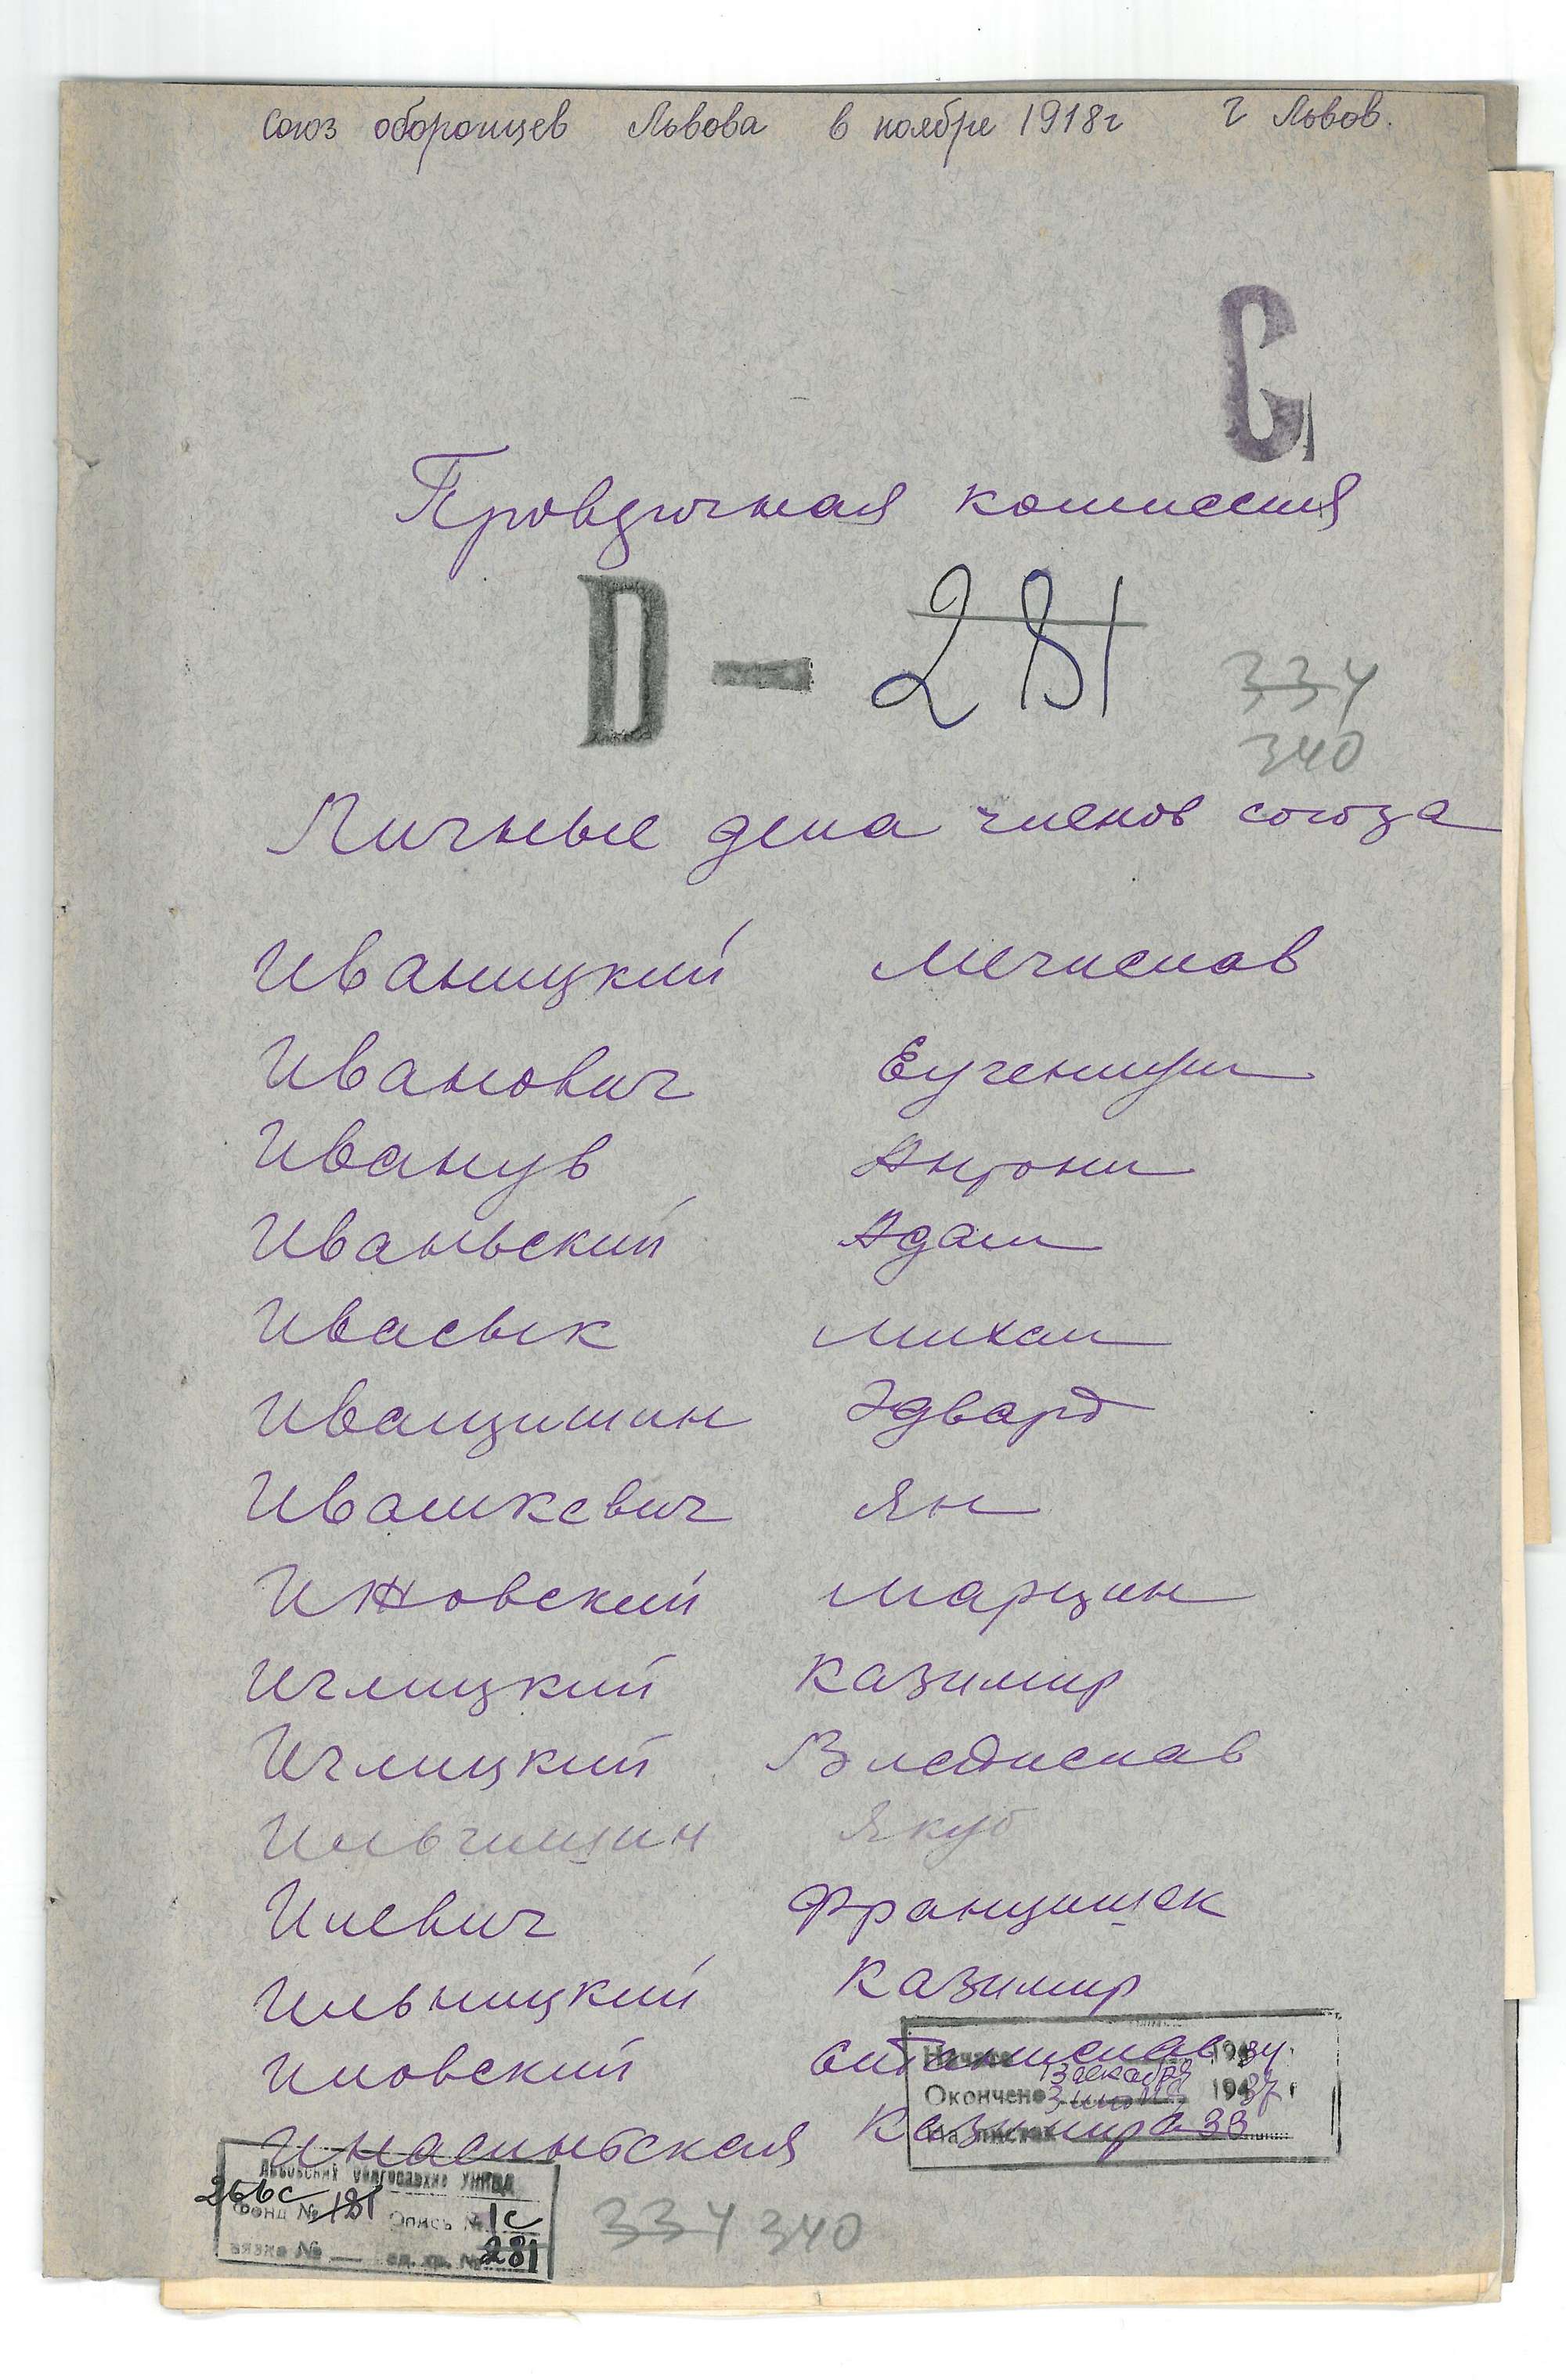 Союз оборонцев Львова в ноябре 1918г г Львов.
С
комиссия
D — 281
334
340
Личные дела членов союза
Иваницкий Мечислав
Иванович Еугениуш
Иванув Антони
Иваньский Адам
Ивасык Михал
Иванцишин Эдвард
Ивашкевич Ян
Ижовский Марцин
Иглицкий Казимир
Иглицкий Владислав
Ильчишин Якуб
Илевич Францишек
Ильницкий Казимир
Иловский Станислав
Казимира
Начато 1934
13 декабря
Окончено 1937 г
На листах 33
Львовский облгосархив УМВД
266с
Фонд № 181 Опись № 1с
вязка № — ед. хр. № 281
334 340